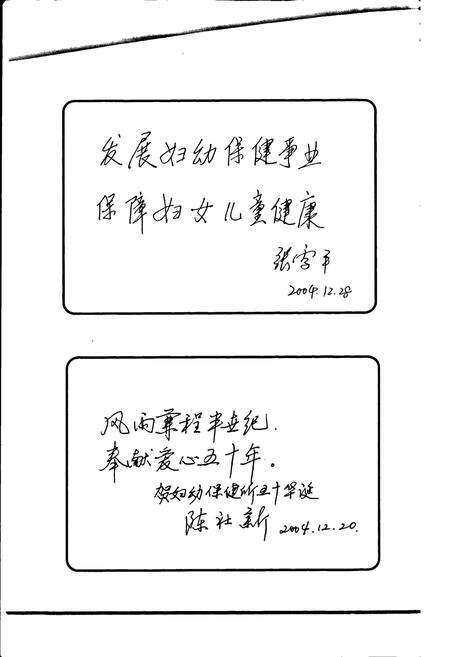 发展妇幼保健事业
保障妇女儿童健康
张
2004.12.28
风雨兼程半世纪.
奉献爱心五十年。
贺妇幼保健所五十华诞
陈社新 2004.12.20.